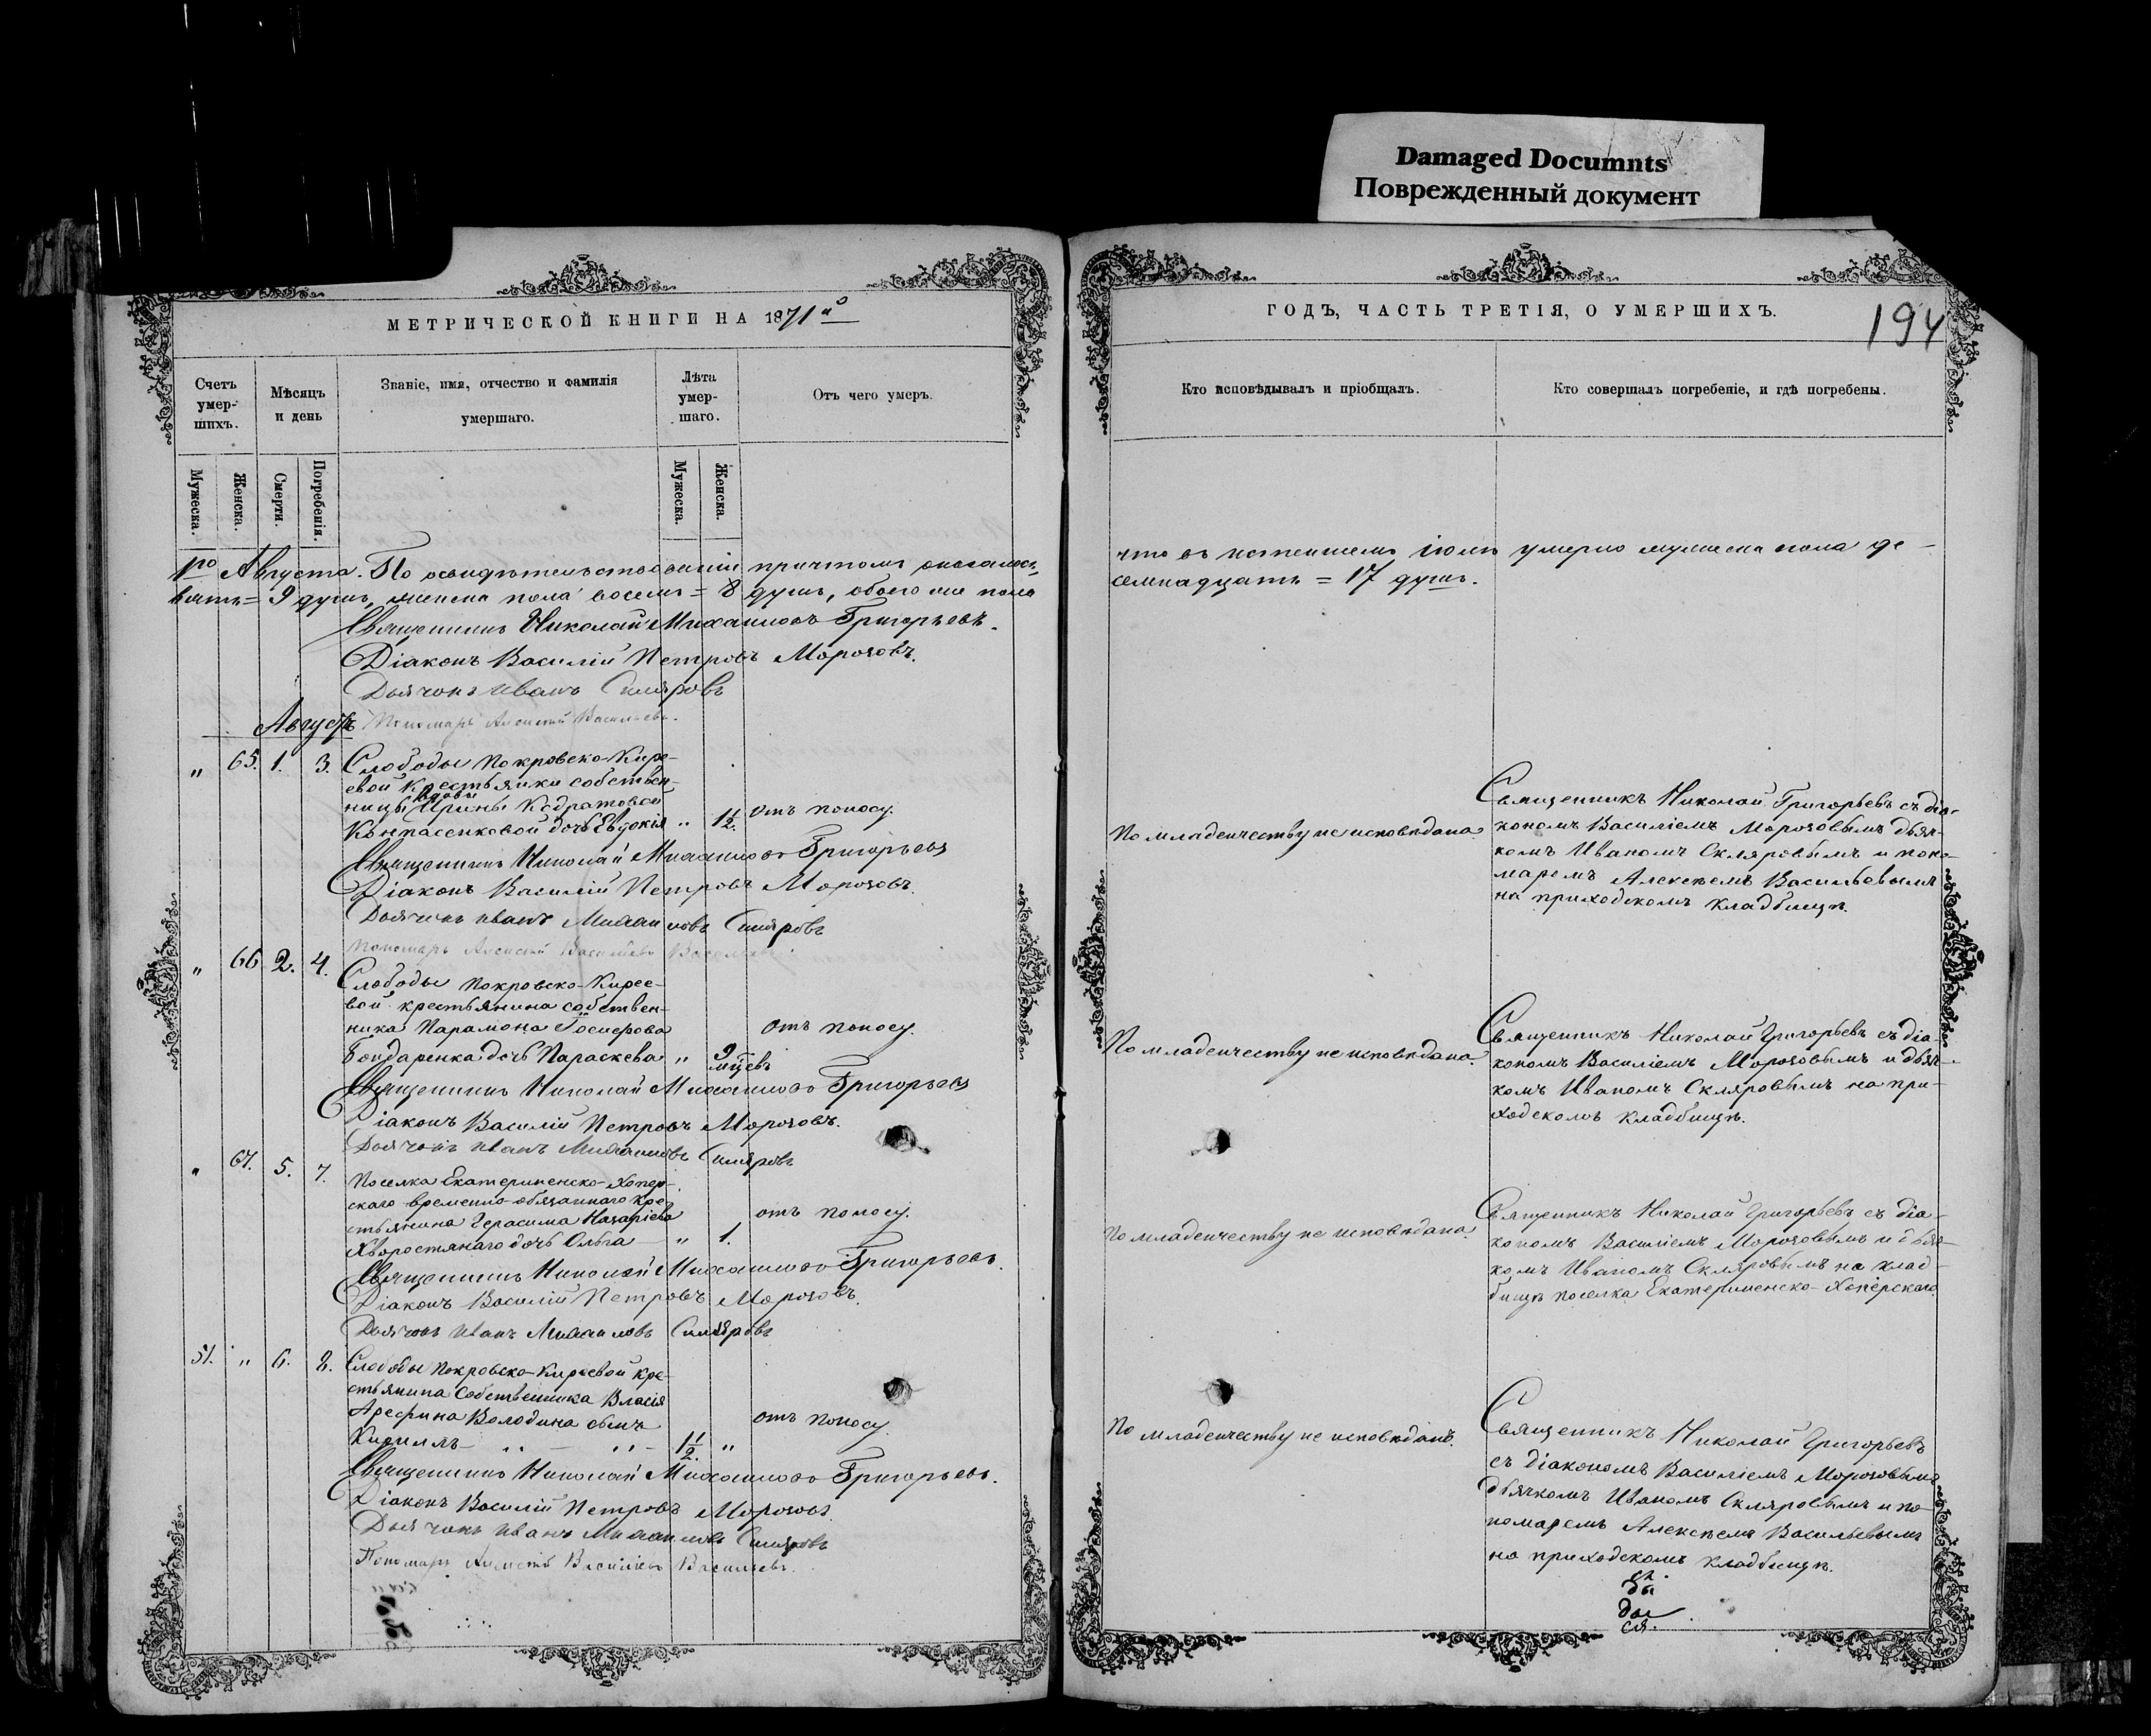 Damaged Documnts
Поврежденный документ
МЕТРИЧЕСКОЙ КНИГИ НА 1871й
Счетъ умер-
шихъ.
Мѣсяцъ
и день
Званіе, имя, отчество и фамилія
умершаго.
Лѣта
умер-
шаго.
Отъ чего умеръ.
Мужеска.
Женска.
Смерти.
Погребенія.
Мужеска.
Женска.
1го Августа. По освидѣтельствованіи причтомъ оказалось,
вять = 9 душъ, женска пола восемь = 8 душъ, обоего же пола
Священникъ Николай Михаиловъ Григорьевъ.
Діаконъ Василій Петровъ Морозовъ.
Дьячокъ Иванъ Скляровъ
Августъ Пономарь Алексѣй Васильевъ.
" 65. 1. 3. Слободы Покровско-Кире-
евой крестьянки собствен-
ницы вдовы Ирины Кодратовой
дочь Евдокія " 1½. отъ поносу.
Священникъ Николай Михаиловъ Григорьевъ
Діаконъ Василій Петровъ Морозовъ.
Дьячокъ Иванъ Михаиловъ Скляровъ
Пономарь Алексѣй Васильевъ Васильевъ
" 66 2. 4. Слободы Покровско-Кирее-
вой крестьянина собствен-
ника Парамона отъ поносу.
Бондаренка дочь Параскева " 9 мцевъ
Священникъ Николай Михаиловъ Григорьевъ
Діаконъ Василій Петровъ Морозовъ.
Дьячокъ Иванъ Михаиловъ Скляровъ
" 67. 5. 7. Поселка Екатериненско-Хопер-
скаго временно-обязаннаго кре-
стьянина Герасима Назаріева отъ поносу.
Хворостянаго дочь Ольга — " 1.
Священникъ Николай Михаиловъ Григорьевъ.
Діаконъ Василій Петровъ Морозовъ.
Дьячокъ Иванъ Михаиловъ Скляровъ
51. " 6. 8. Слободы Покровско-Киреевой кре-
стьянина собственника Власія
Арефина Володина сынъ отъ поносу.
Кириллъ — 1½. "
Священникъ Николай Михаиловъ Григорьевъ.
Діаконъ Василій Петровъ Морозовъ.
Дьячокъ Иванъ Михаиловъ Скляровъ
Пономарь Алексѣй Васильевъ Васильевъ.
ГОДЪ, ЧАСТЬ ТРЕТІЯ, О УМЕРШИХЪ.
194
Кто исповѣдывалъ и пріобщалъ.
Кто совершалъ погребеніе, и гдѣ погребены.
что въ истекшемъ іюлѣ умерло мужеска пола де-
семнадцать = 17 душъ.
По младенчеству не исповѣдана.
Священникъ Николай Григорьевъ съ діа-
кономъ Василіемъ Морозовымъ дьяч-
комъ Иваномъ Скляровымъ и поно-
маремъ Алексѣемъ Васильевымъ
на приходскомъ кладбищѣ.
По младенчеству не исповѣдана.
Священникъ Николай Григорьевъ съ діа-
кономъ Василіемъ Морозовымъ и дьяч-
комъ Иваномъ Скляровымъ на при-
ходскомъ кладбищѣ.
По младенчеству не исповѣдана.
Священникъ Николай Григорьевъ съ діа-
кономъ Василіемъ Морозовымъ и дьяч-
комъ Иваномъ Скляровымъ на клад-
бищѣ поселка Екатериненско-Хоперскаго
По младенчеству не исповѣданъ.
Священникъ Николай Григорьевъ
съ діакономъ Василіемъ Морозовымъ
дьячкомъ Иваномъ Скляровымъ и по-
номаремъ Алексѣемъ Васильевымъ
на приходскомъ кладбищѣ.